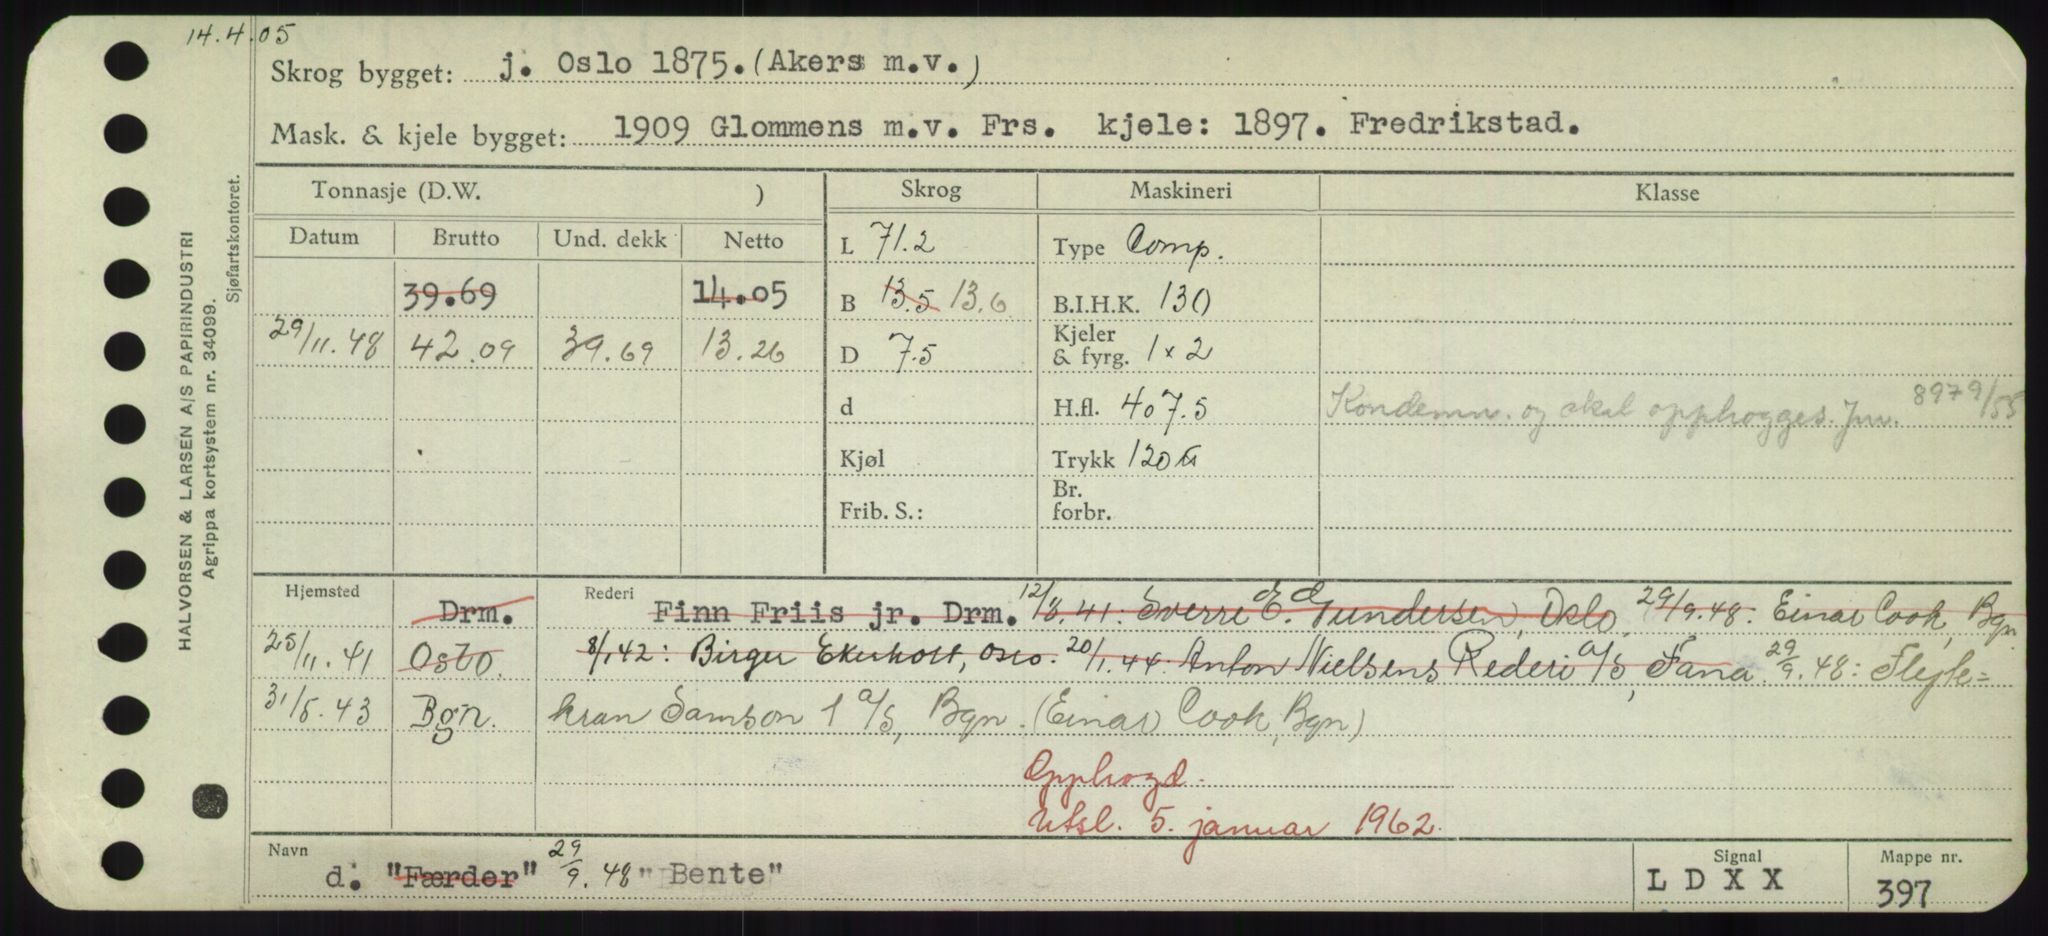 14.4.05
Skrog bygget: j. Oslo 1875. (Akers m.v.)
Mask. & kjele bygget: 1909 Glommens m.v. Frs. kjele: 1897. Fredrikstad.
HALVORSEN & LARSEN A/S PAPIRINDUSTRI
Agrippa kortsystem nr. 34099.
Sjøfartskontoret.
Tonnasje (D.W. ) Skrog Maskineri Klasse
Datum Brutto Und. dekk Netto
L 71.2 Type Comp.
39.69 14.05 B 13.5 13.6 B.I.H.K. 130
29/11.48 42.09 39.69 13.26 D 7.5 Kjeler & fyrg. 1x2
d H.fl. 407.5 Kondemn. og skal opphogges. Jnr. 8979/55
Kjøl Trykk 120
Frib. S.: Br. forbr.
Hjemsted Drm. Rederi Finn Friis jr. Drm. 12/8.41: Sverre E. Gundersen, Oslo, 29/9.48: Einar Cook, Bgn
25/11.41 Oslo. 8/1.42: Birger Ekerholt, Oslo. 20/1.44: Anton Nielsens Rederi A/S, Fana. 29/9.48: Flyte=
31/5.43 Bgn. kran Samson 1 A/S, Bgn. (Einar Cook, Bgn)
Opphogd.
Utsl. 5. januar 1962.
Navn d. "Færder" 29/9.48 "Bente"
Signal LDXX
Mappe nr. 397